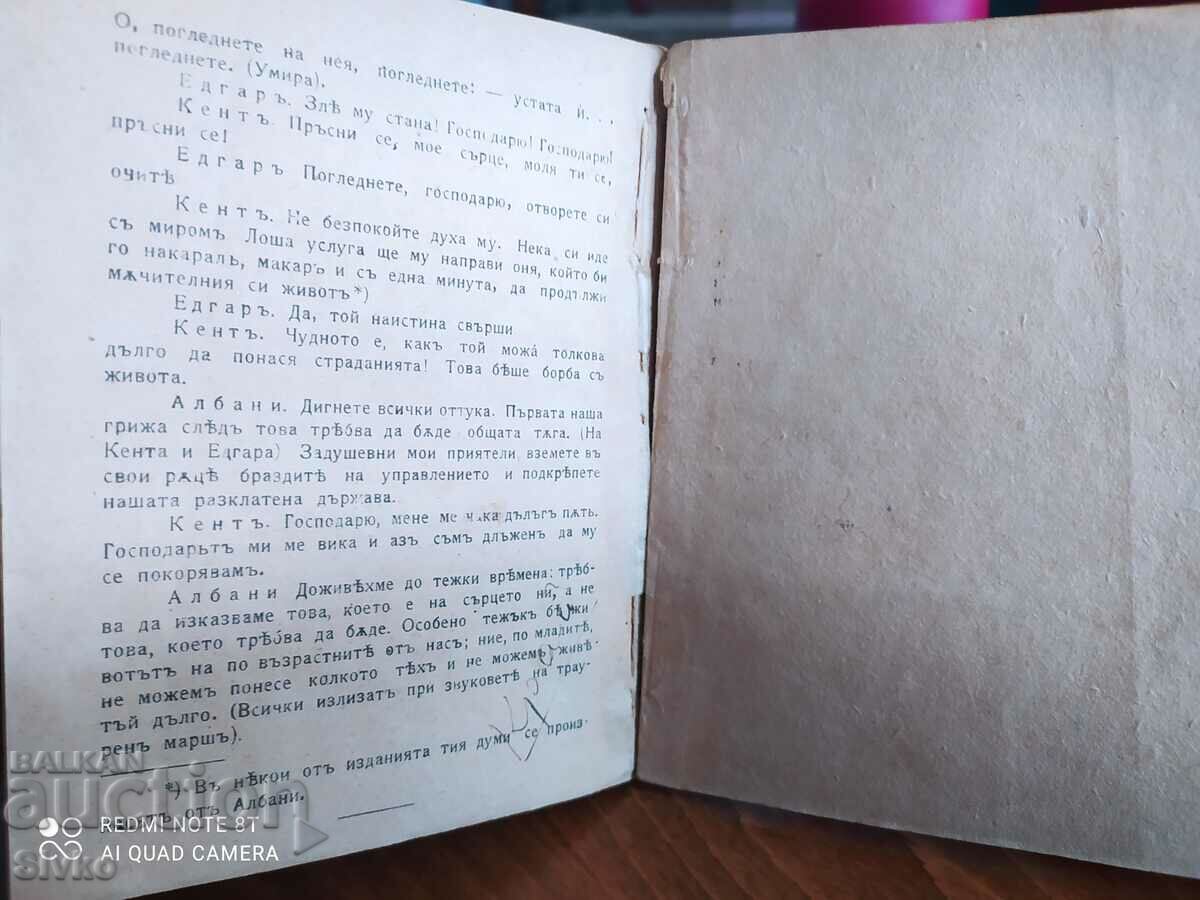 О, погледнете на нея, погледнете: — устата ѝ. . ,
погледнете. (Умира).
Едгаръ. Злѣ му стана! Господарю! Господарю!
Кентъ. Пръсни се, мое сърце, моля ти се,
пръсни се!
Едгаръ Погледнете, господарю, отворете си
очитѣ
Кентъ. Не безпокойте духа му. Нека си иде
съ миромъ Лоша услуга ще му направи оня, който би
го накаралъ, макаръ и съ една минута, да продължи
мѫчителния си животъ*)
Едгаръ. Да, той наистина свърши
Кентъ. Чудното е, какъ той можа́ толкова
дълго да понася страданията! Това бѣше борба съ
живота.
Албани. Дигнете всички оттука. Първата наша
грижа слѣдъ това трѣбва да бѫде общата тѫга. (На
Кента и Едгара) Задушевни мои приятели вземете въ
свои рѫцѣ браздитѣ на управлението и подкрѣпете
нашата разклатена държава.
Кентъ. Господарю, мене ме чака дълъгъ пѫть.
Господарьтъ ми ме вика и азъ съмъ длъженъ да му
се покорявамъ.
Албани Доживѣхме до тежки врѣмена: трѣб-
ва да изказваме това, което е на сърцето ни, а не
това, което трѣбва да бѫде. Особено тежъкъ бѣ жи
вотътъ на по възрастнитѣ отъ насъ; ние, по младитѣ,
не можемъ понесе колкото тѣхъ и не можемъ живѣ
тъй дълго. (Всички излизатъ при звуковетѣ на трау-
ренъ маршъ).
*) Въ нѣкои отъ изданията тия думи се произ-
отъ Албани.
BALKAN
auction
REDMI NOTE 8T
AI QUAD CAMERA
Sivko